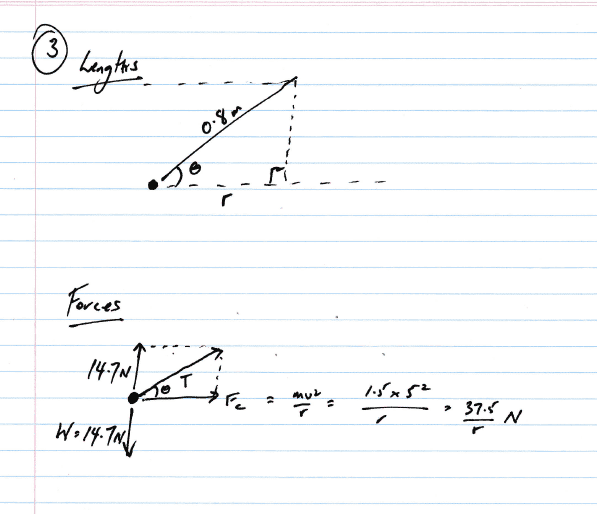 3
Lengths
0.8 m
θ
r
Forces
14.7N
θ T
Fc = mv²/r = 1.5 × 5²/r = 37.5/r N
W = 14.7N